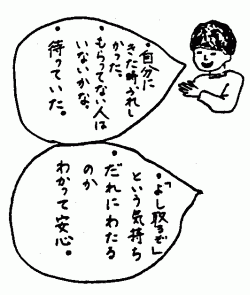 ・自分に
きた時うれし
かった。
・もらってない人は
いないかな。
・待っていた。
・「よし取るぞ」
という気持ち
・だれにわたる
のか
わかって安心。